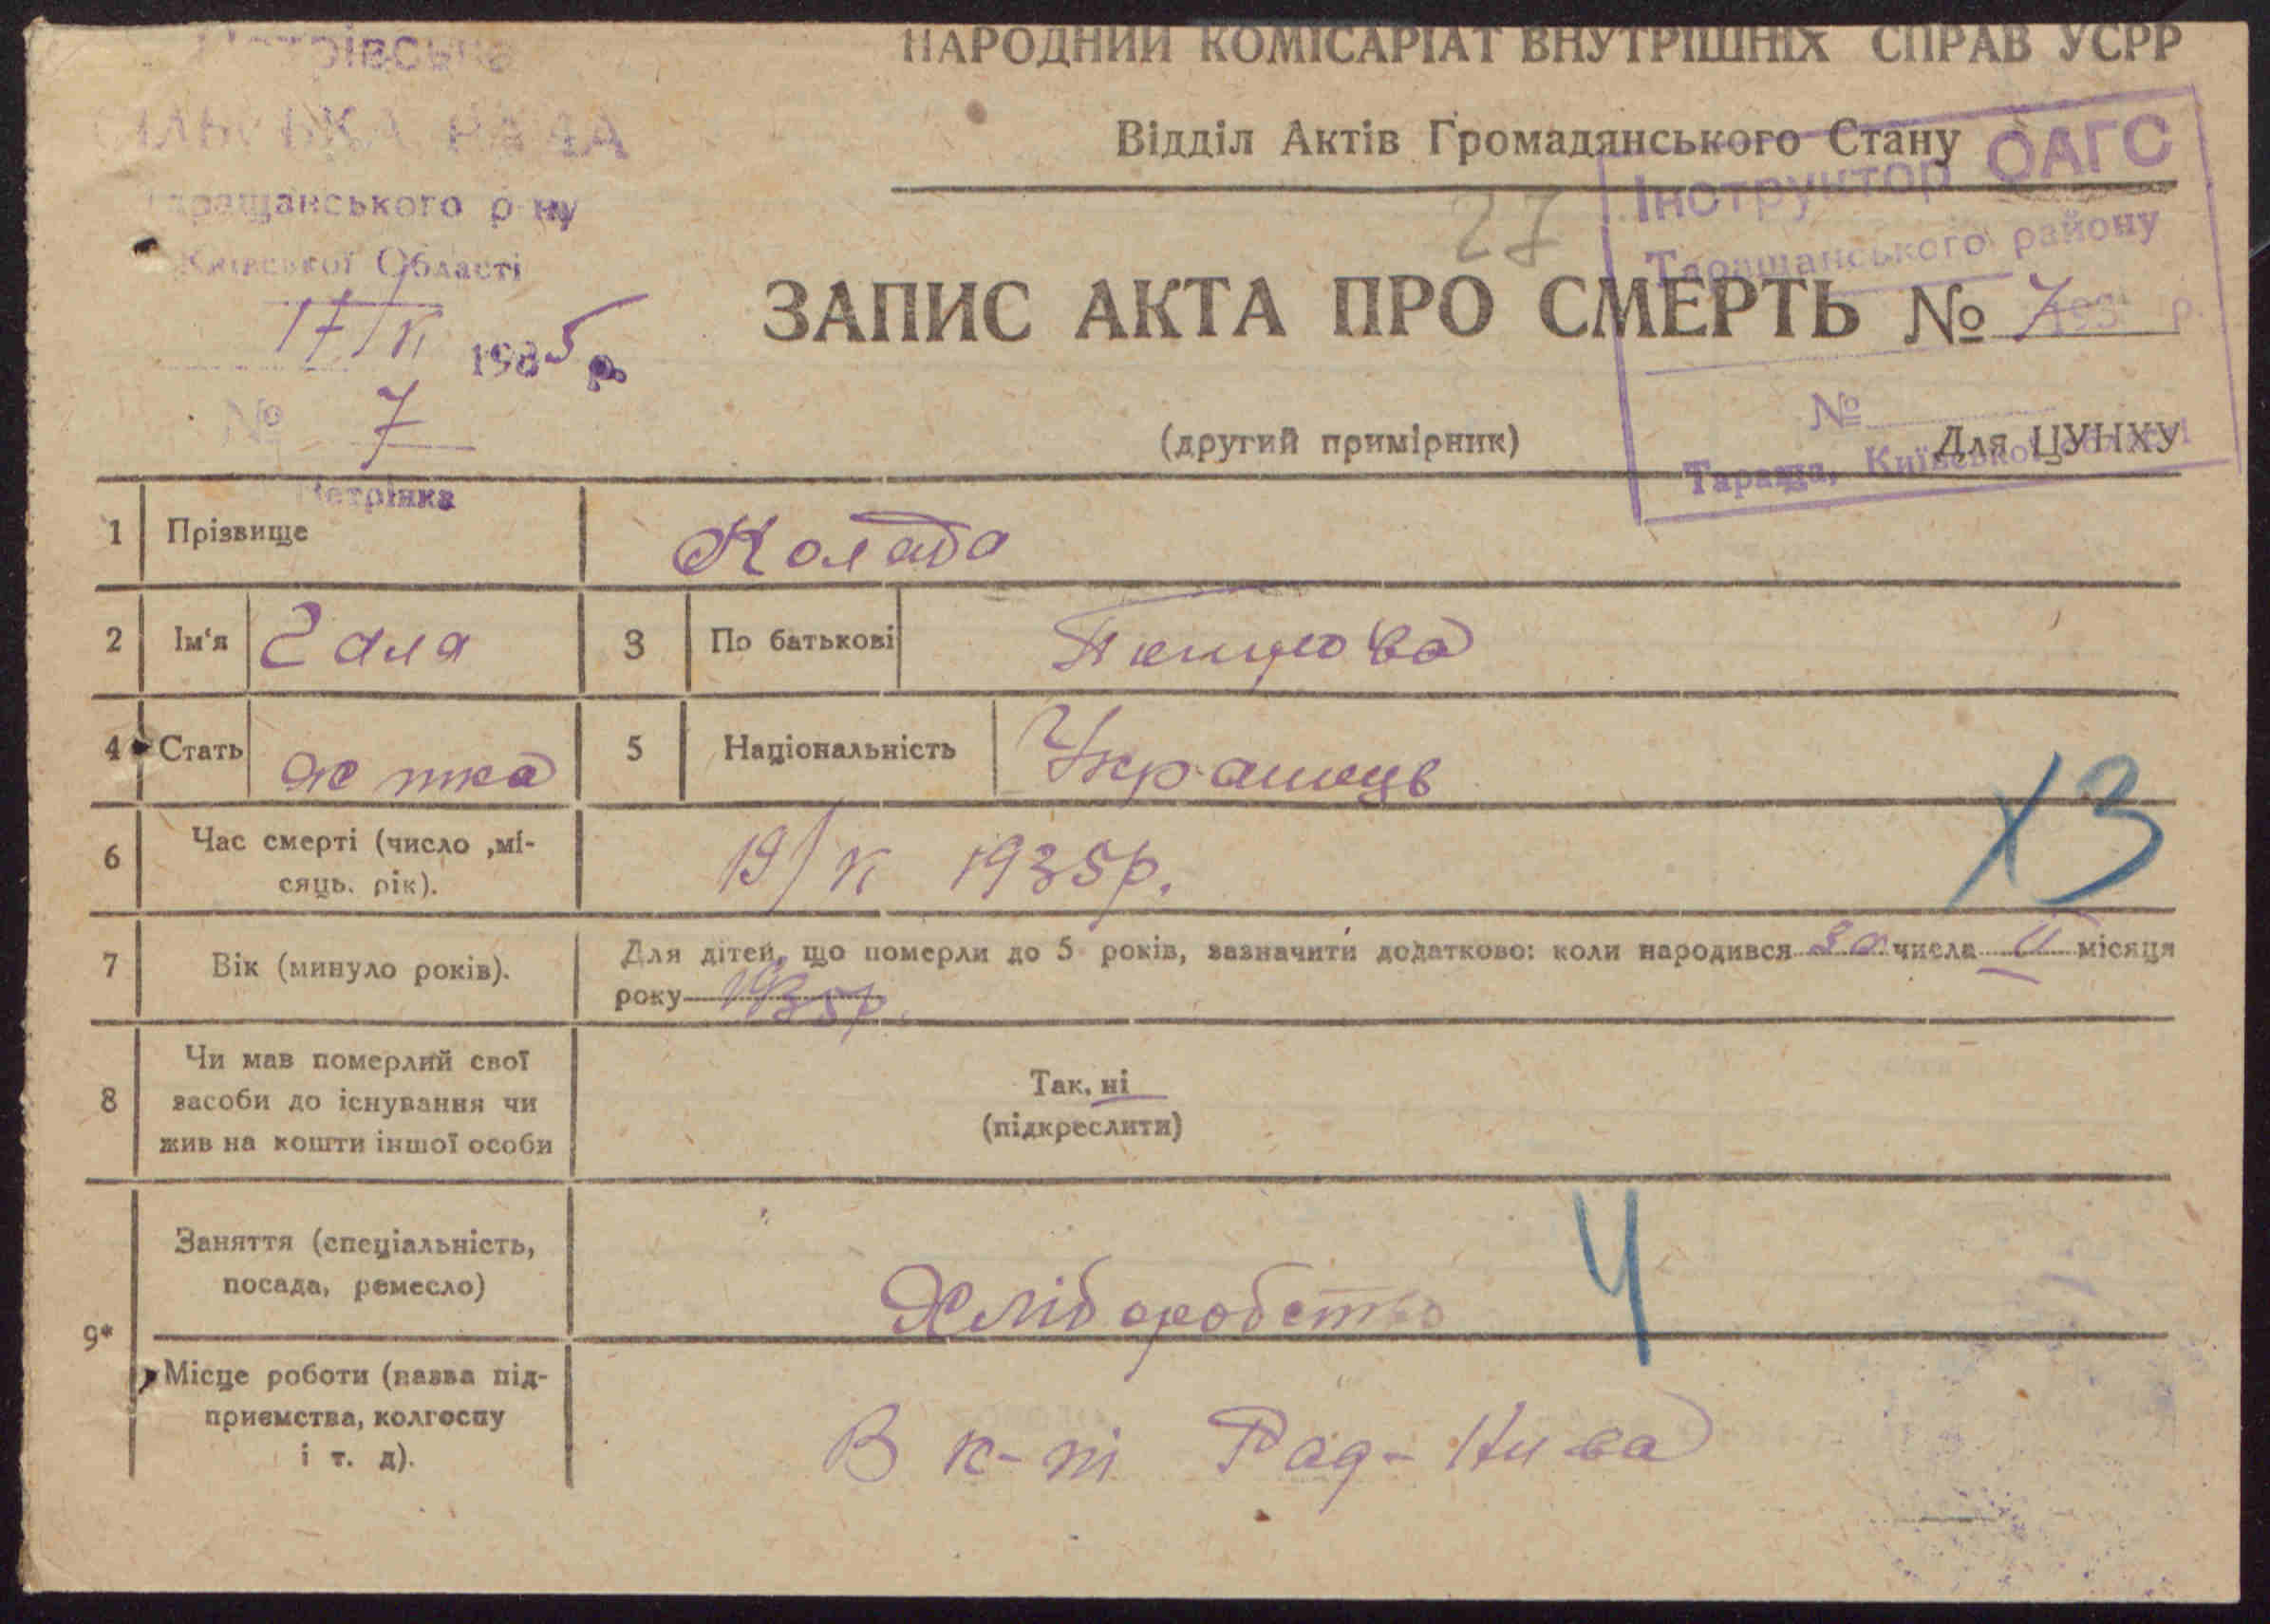 НАРОДНИЙ КОМІСАРІАТ ВНУТРІШНІХ СПРАВ УСРР
Відділ Актів Громадянського Стану
Петрівська
СІЛЬСЬКА РАДА
Таращанського р-ну
Київської Області
17/ІХ 1935 р.
№ 7
Петрівка
Інструктор ОАГС
Таращанського району
193 р.
№
Тараща, Київської області
27
ЗАПИС АКТА ПРО СМЕРТЬ № 7
(другий примірник)
Для ЦУНХУ
1 Прізвище Колада
2 Ім'я Галя 3 По батькові
4 Стать ж тка 5 Національність Українець
6 Час смерті (число ,мі-
сяць. рік).
1935р.
Х3
7 Вік (минуло років).
Для дітей, що померли до 5 років, зазначити додатково: коли народився 30 числа ІІ місяця
року 1935р.
8 Чи мав померлий свої
засоби до існування чи
жив на кошти іншої особи
Так, ні
(підкреслити)
9* Заняття (спеціальність,
посада, ремесло)
Хліборобство
4
Місце роботи (назва під-
приємства, колгоспу
і т. д).
В к-пі Рад-Нива